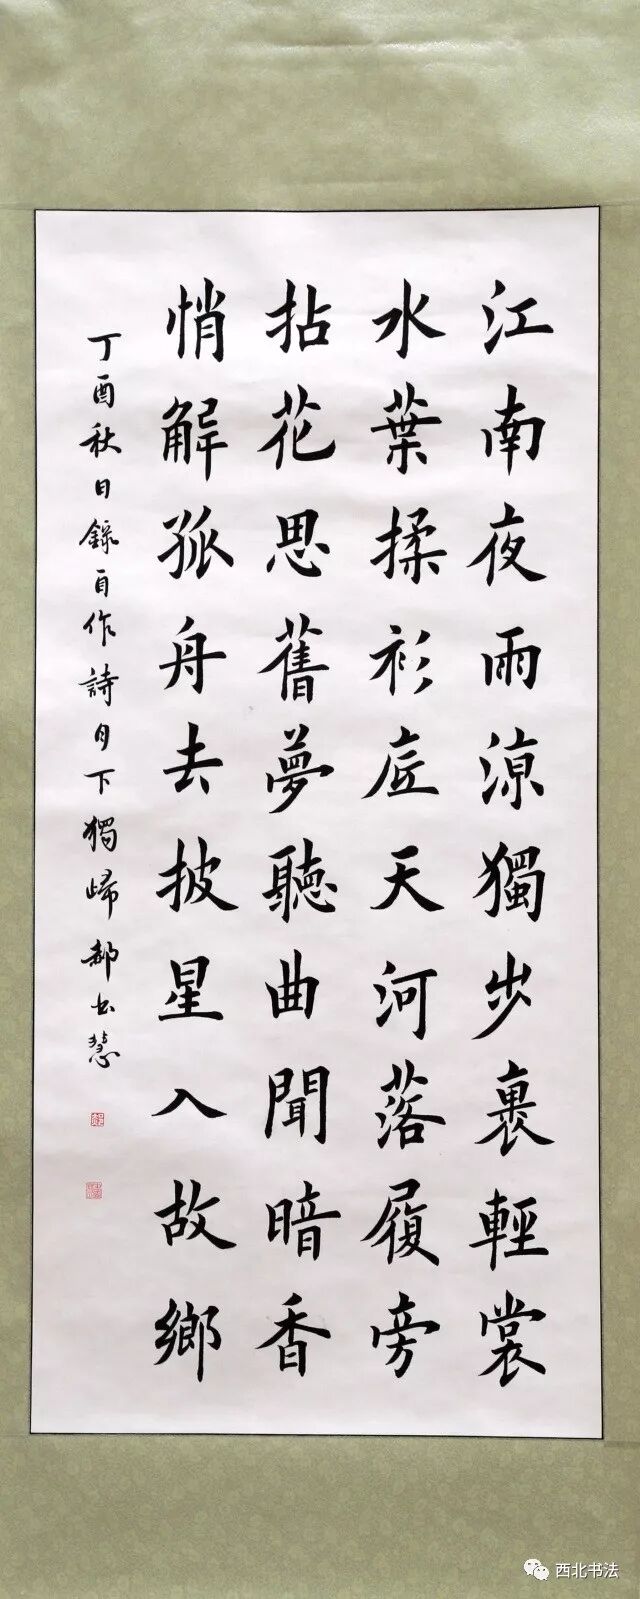 江南夜雨涼獨步裹輕裳
水葉揉衫底天河落履旁
拈花思舊夢聽曲聞暗香
悄解孤舟去披星入故鄉
丁酉秋日錄自作詩月下獨歸郝書慧
西北书法